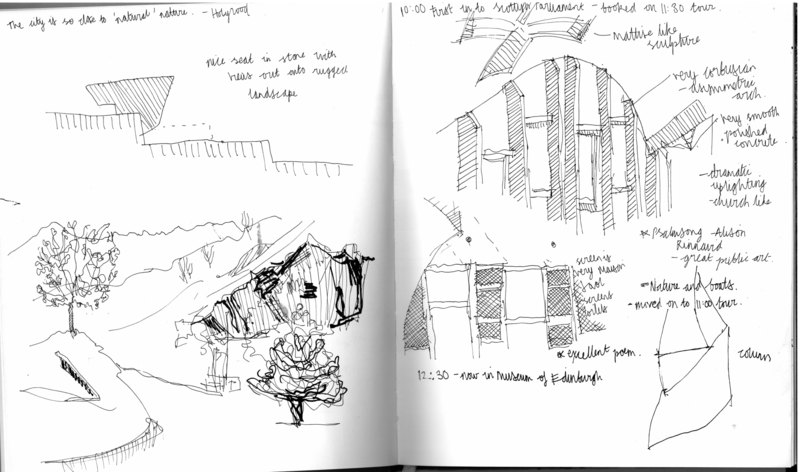 The city is so close to 'natural' nature. - Holyrood
nice seat in stone with
views out onto rugged
landscape
10:00 first in to Scottish Parliament - booked on 11:30 tour.
- Matisse like
sculpture
very corbusian
- asymmetric
arch.
very smooth
polished
concrete
- dramatic
uplighting
- church like
* Psalmsong - Alison
Kinnaird
- great public art.
screen is
very Maison
screens
- Nature and boats.
- moved on to 11:00 tour.
* excellent poem.
column
12:30 - now in Museum of Edinburgh